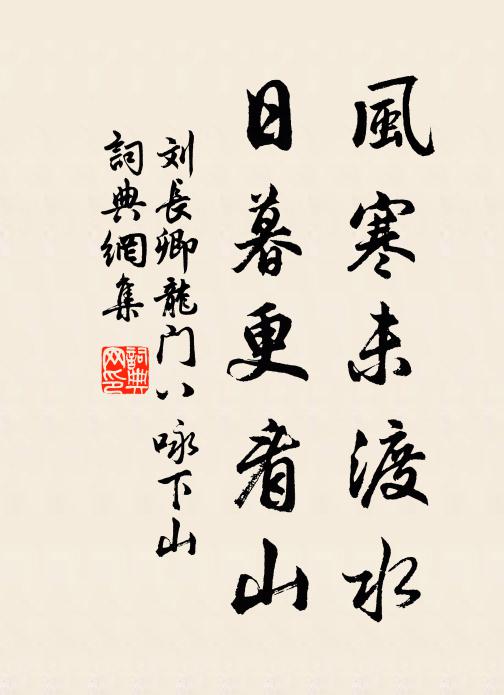 風寒未渡水
日暮更看山
刘長卿龍门八咏下山
詞典網集
詞典网印